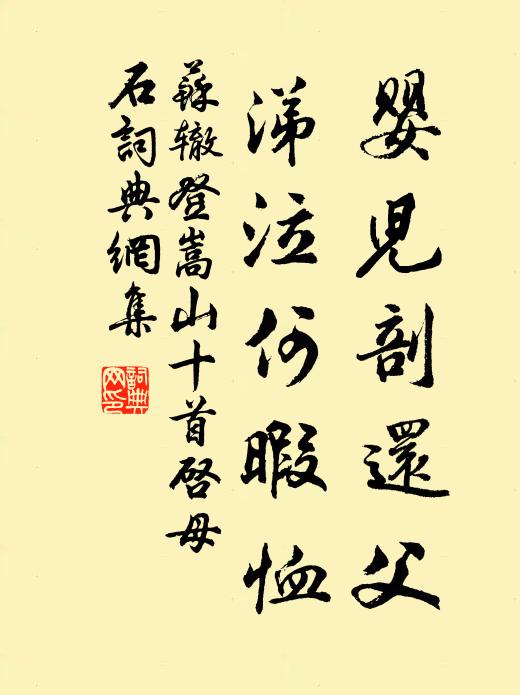 嬰兒剖還父
涕泣何暇恤
蘇辙登嵩山十首啓母
石詞典網集
詞典
网印